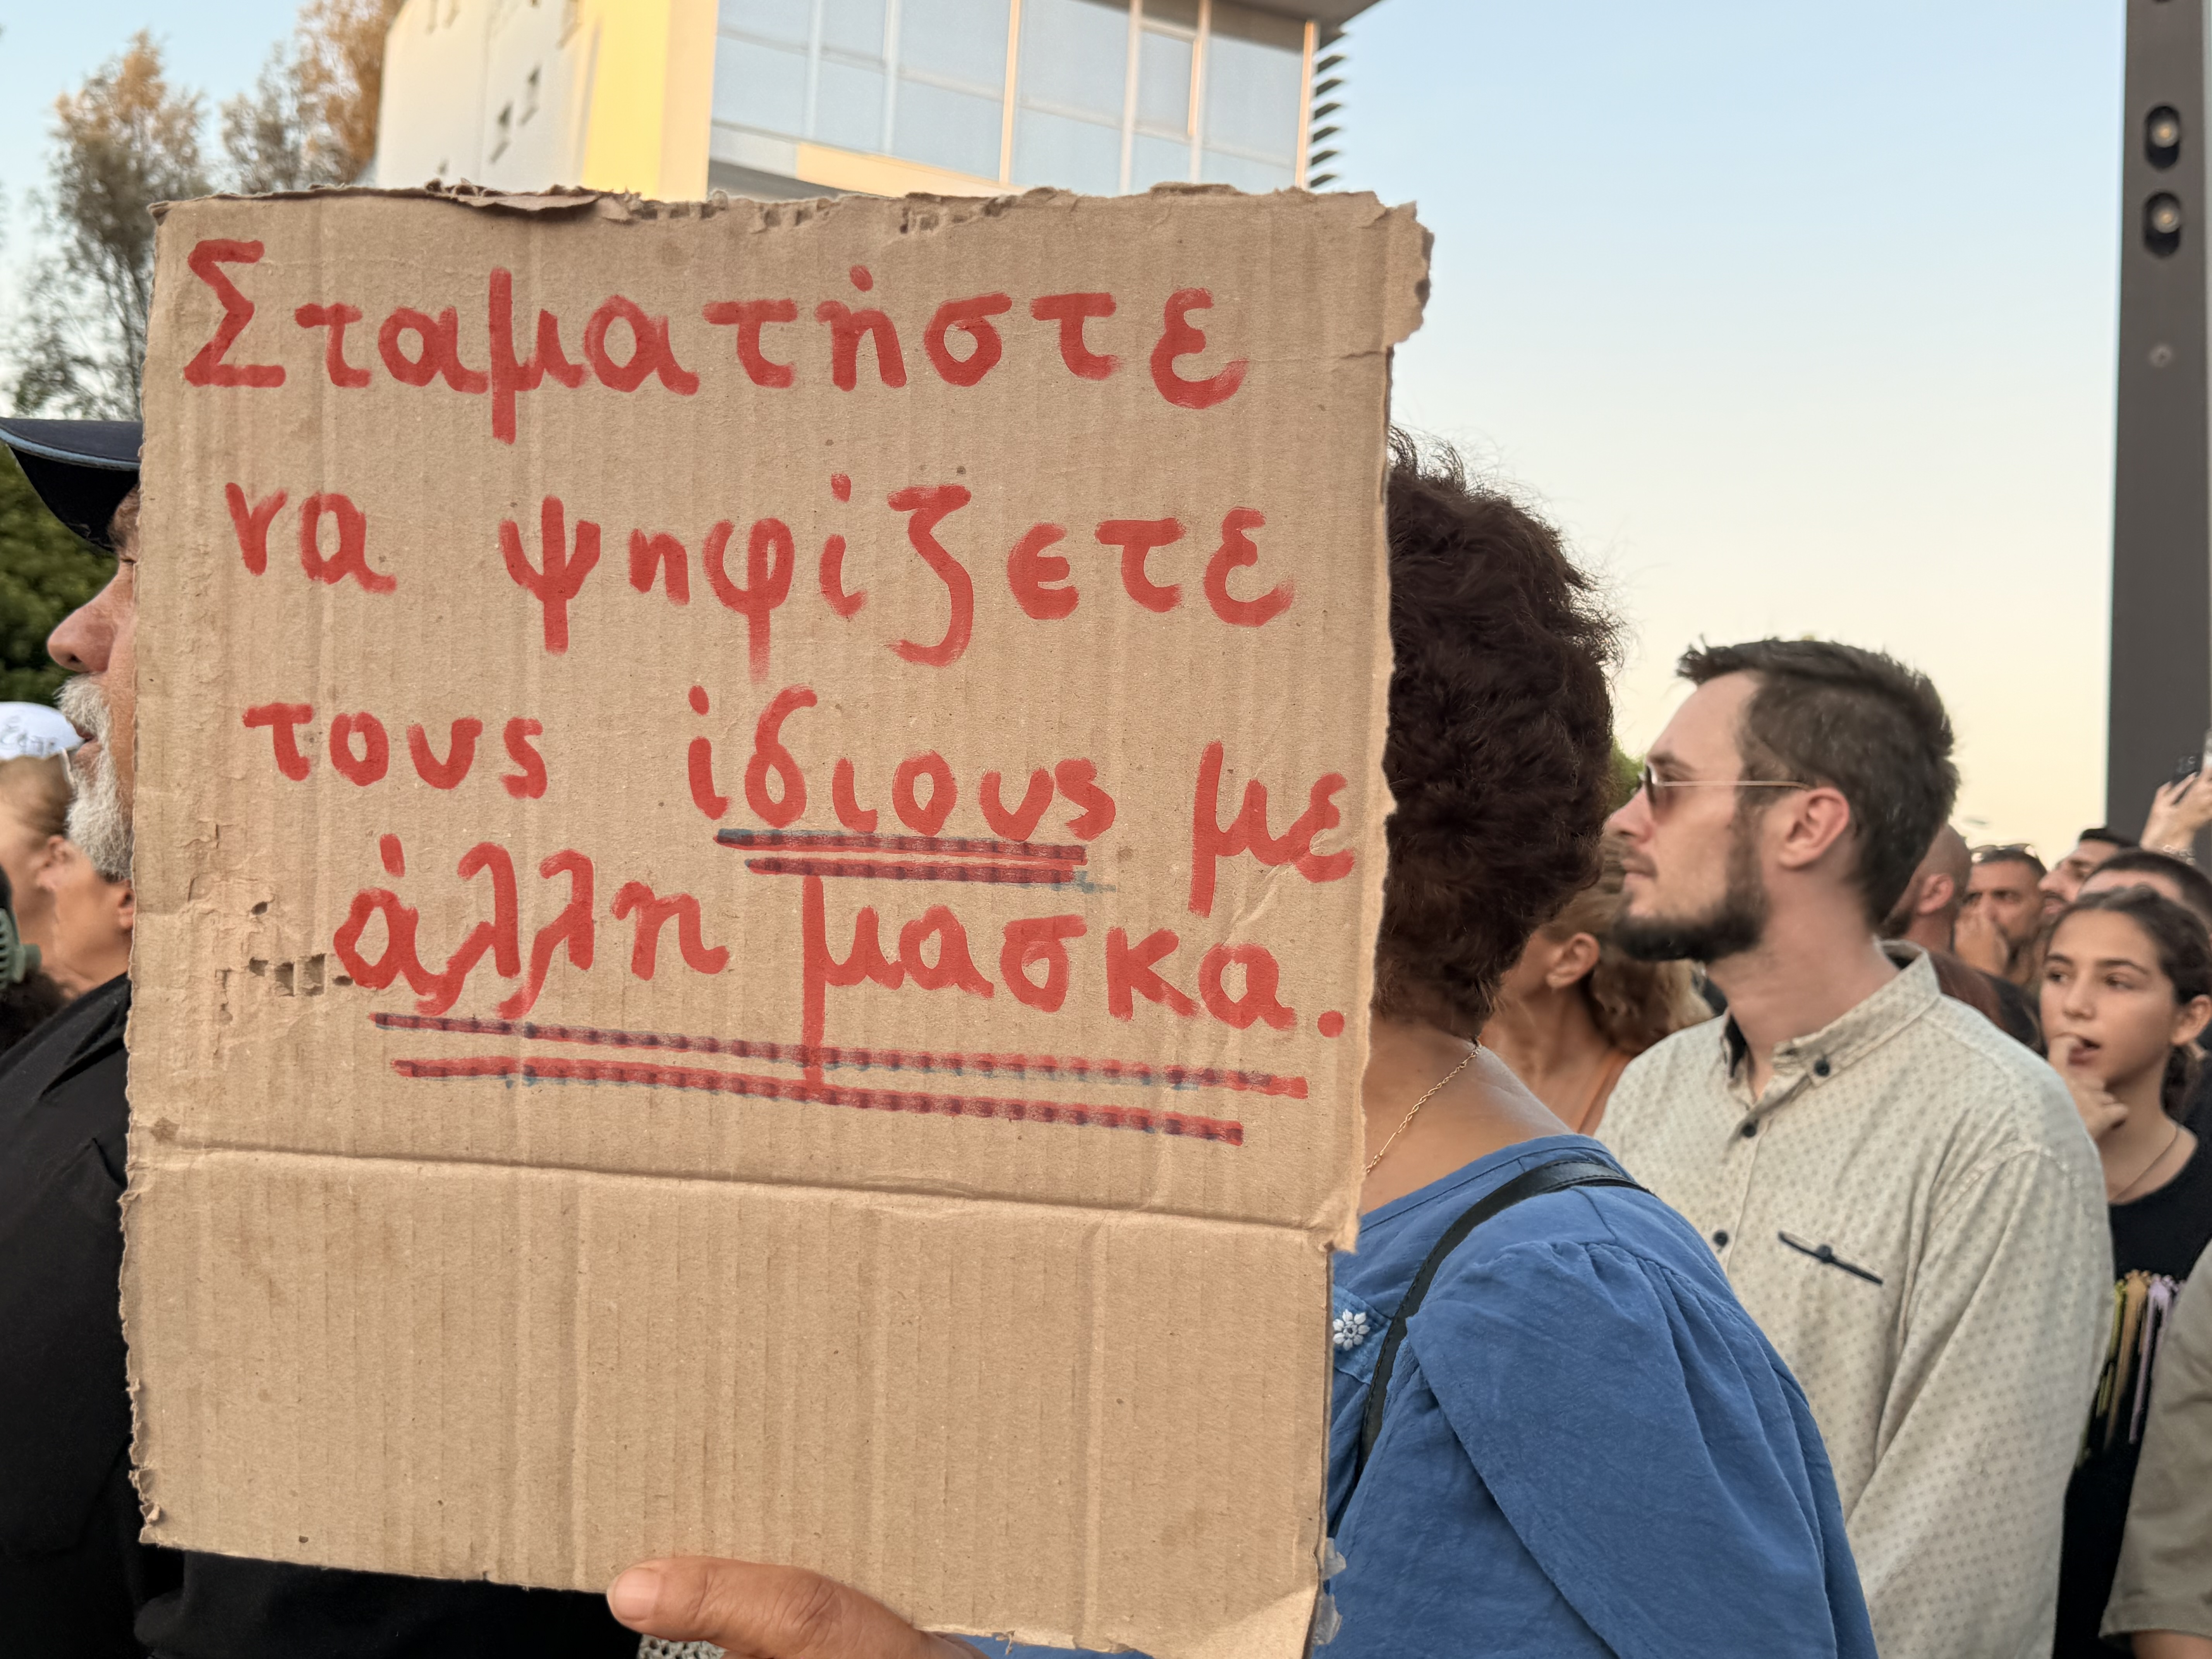 Σταματήστε
να ψηφίζετε
τους ίδιους με
άλλη μασκα.